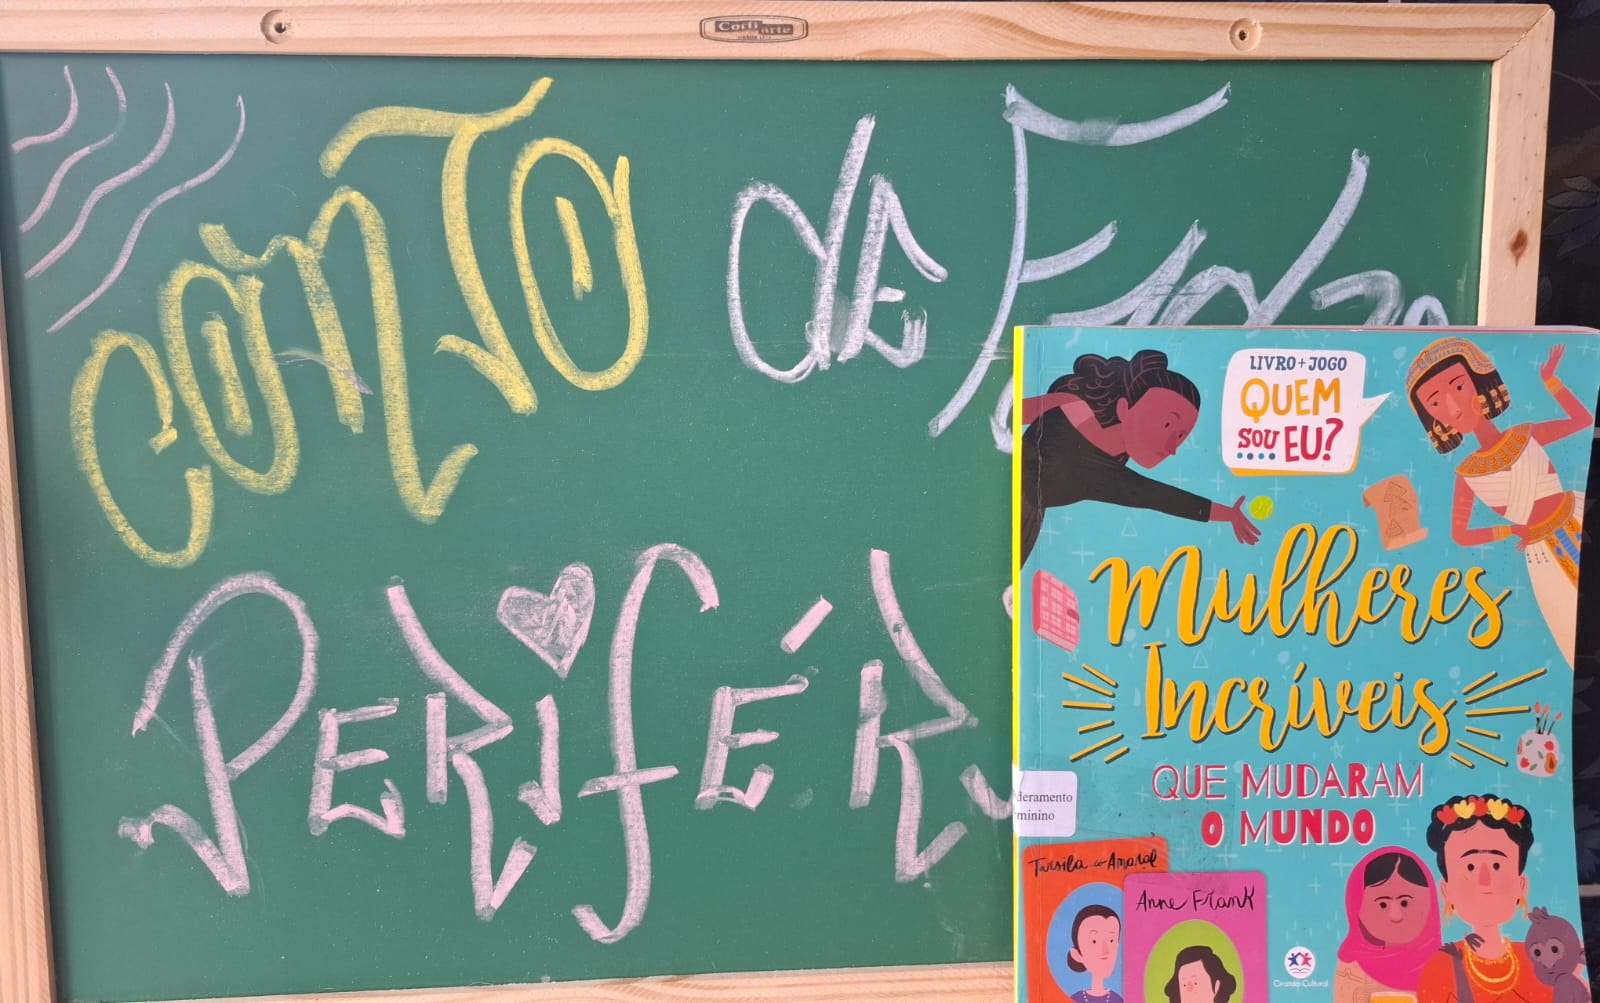 Corti arte
CONTO de
PERIFÉR
LIVRO + JOGO
QUEM
SOU EU?
Mulheres
Incríveis
QUE MUDARAM
O MUNDO
deramento
minino
Tarsila do Amaral
Anne Frank
Ciranda Cultural